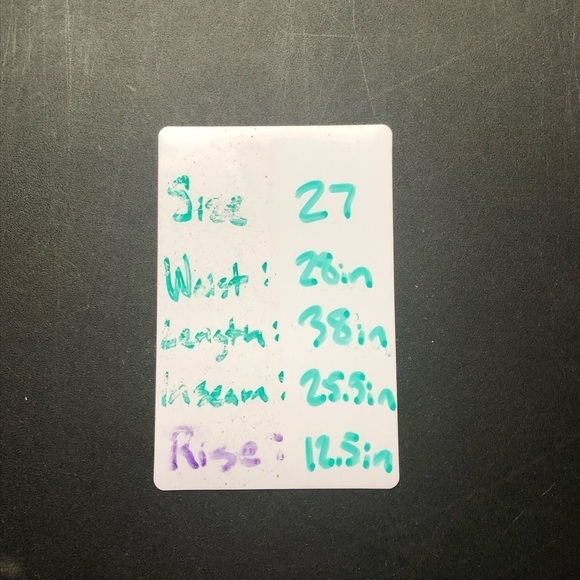 Size 27
Waist: 28in
Length: 38in
inseam: 25.5in
Rise: 12.5in